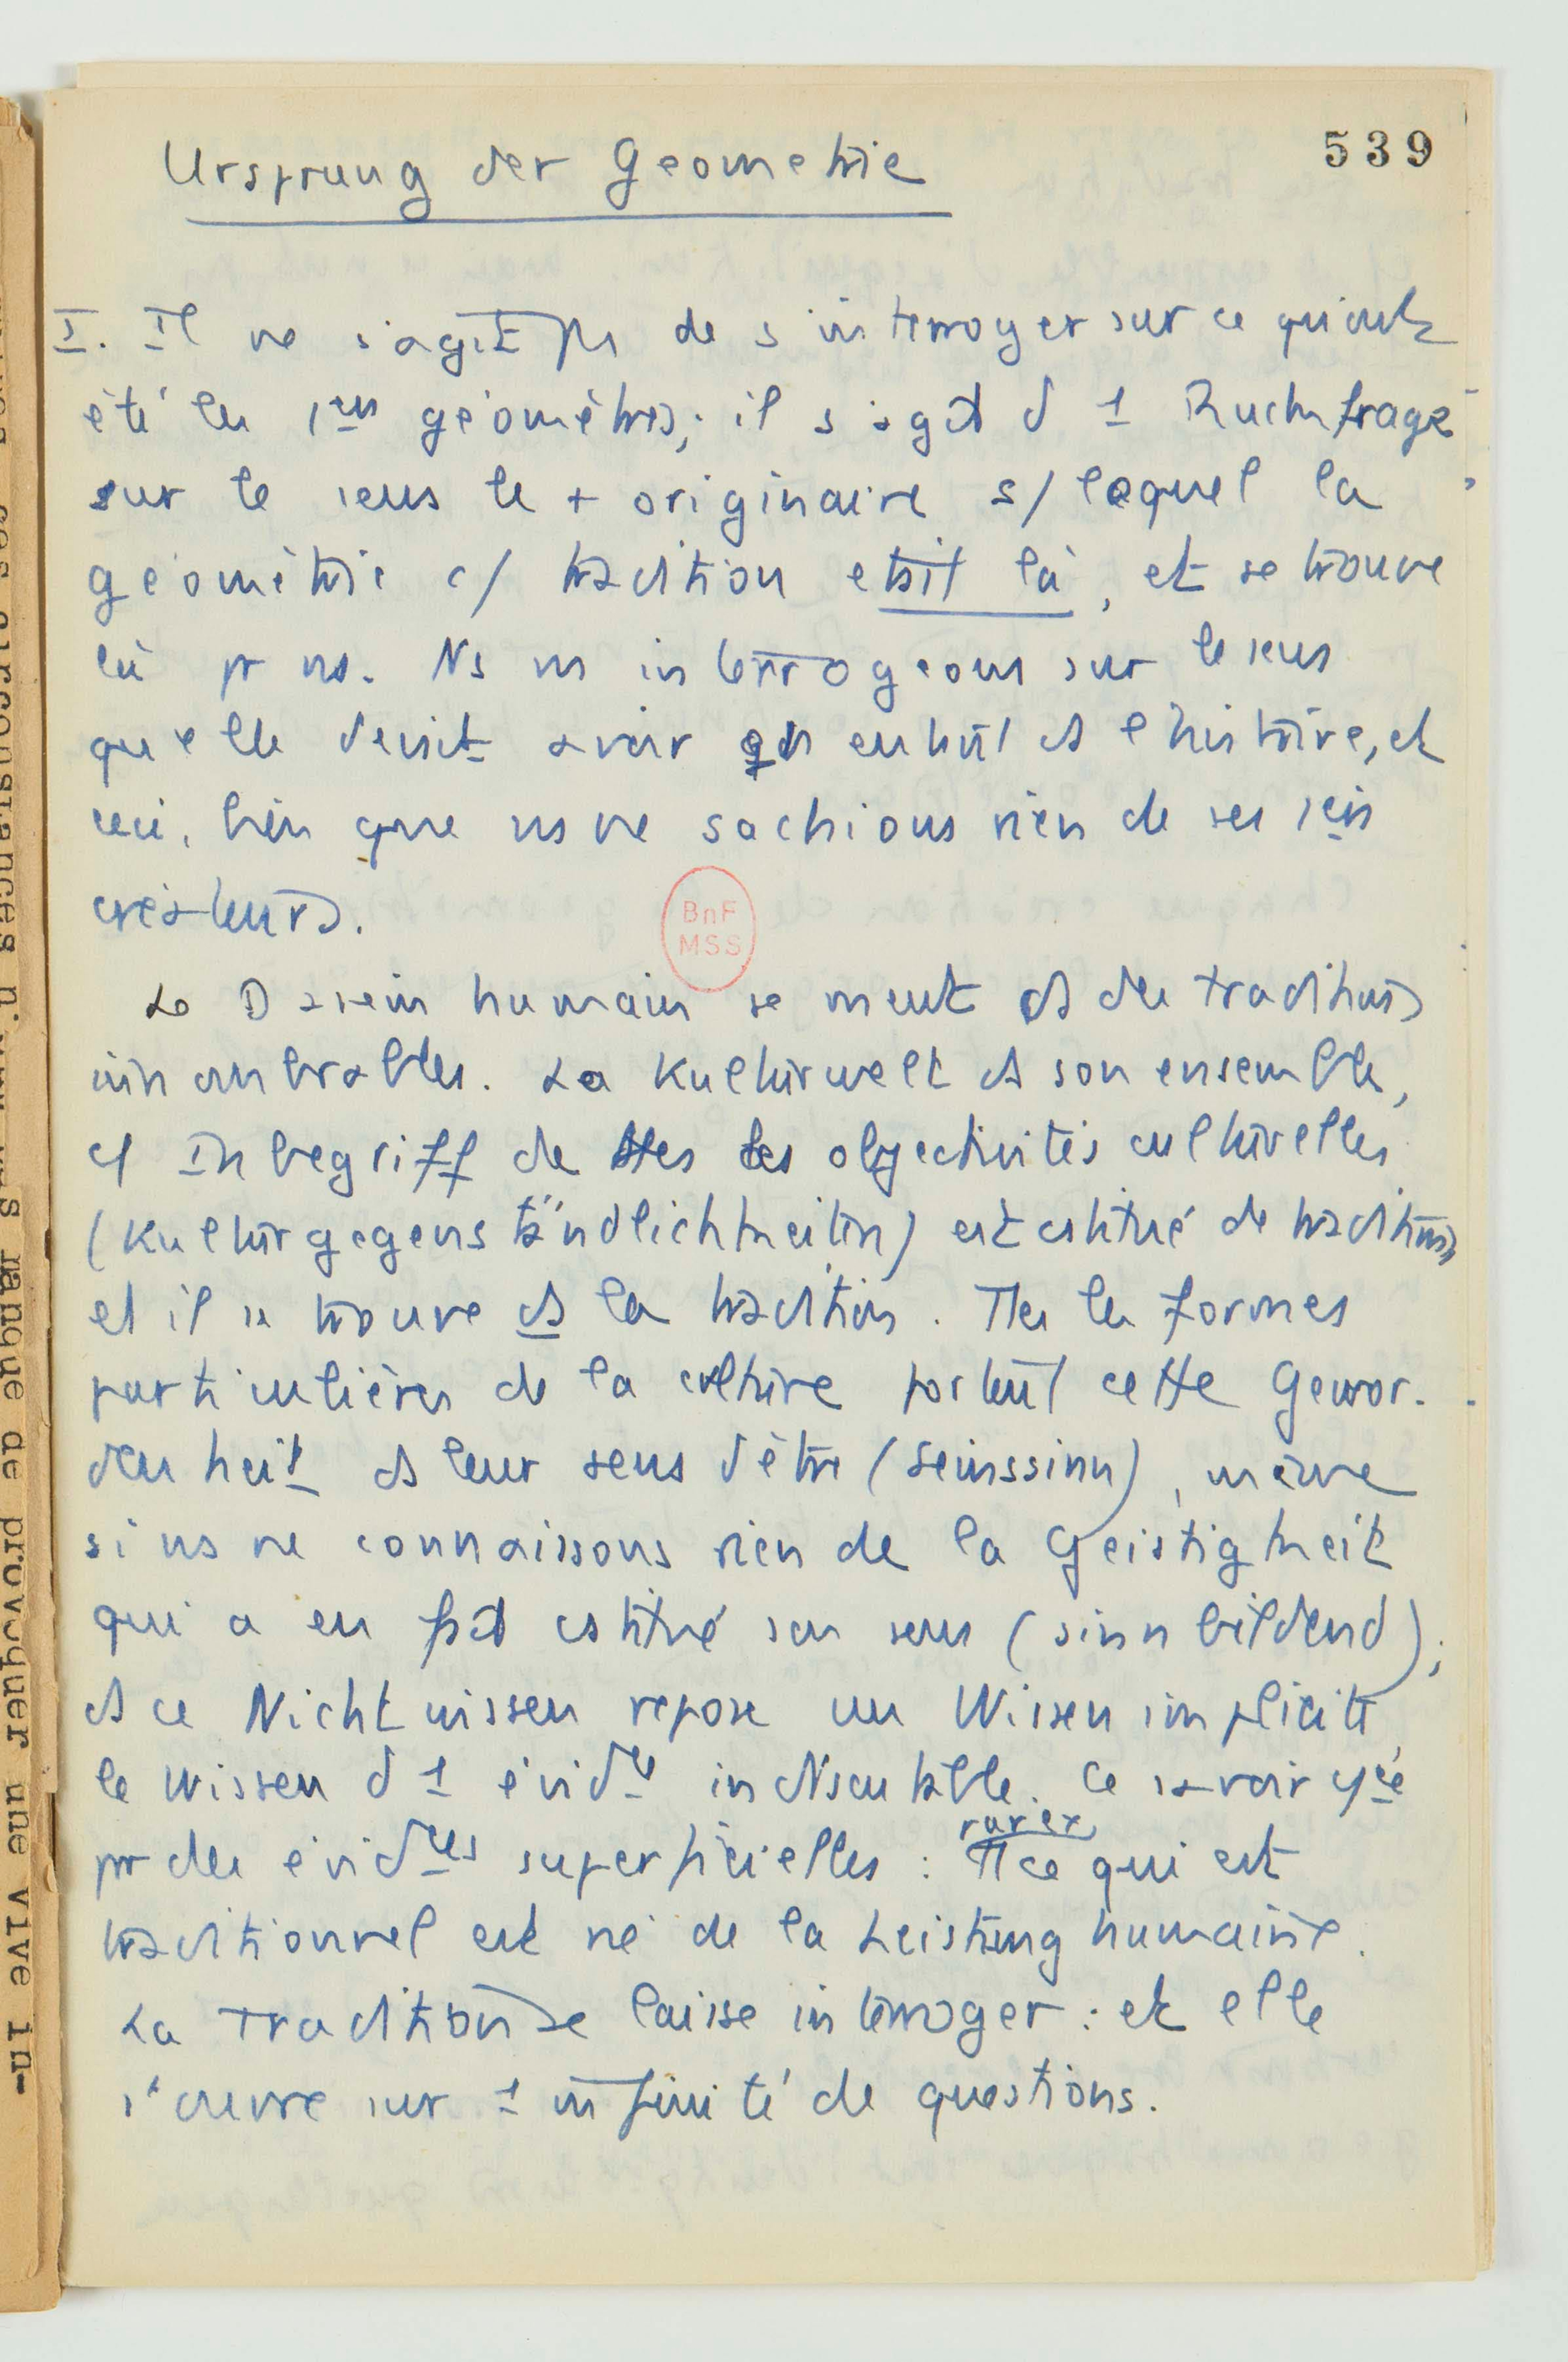 539
Ursprung der Geometrie
I. Il ne s'agit pas de s'interroger sur ce qu'ont
été les 1ers géomètres; il s'agit d 1 Ruckfrage
sur le sens le + originaire s/ lequel la
géométrie c/ tradition etait là, et se trouve
là pr ns. Ns ns interrogeons sur le sens
qu'elle devait avoir qd en entrant ds l'histoire, et
ceci, bien que ns ne sachions rien de ses 1ers
créateurs.
Le Dasein humain se meut ds des traditions
innombrables. La Kulturwelt ds son ensemble,
c/ Inbegriff de ttes les objectivités culturelles
(Kulturgegenständlichkeiten) est cstitué de traditions
et il se trouve ds la tradition. Ttes les formes
particulières de la culture portent cette Gewor-
denheit ds leur sens d'être (Seinssinn), même
si ns ne connaissons rien de la Geistigkeit
qui a en fait cstitué son sens (sinnbildend);
ds ce Nicht wissen repose un Wissen implicite
le Wissen d 1 évidce indiscutable. Ce savoir
pr des évidces superficielles : tt ce qui est
traditionnel est né de la Leistung humaine.
La Tradition se laisse interroger : et elle
s'ouvre sur 1 infinité de questions.
BnF
MSS